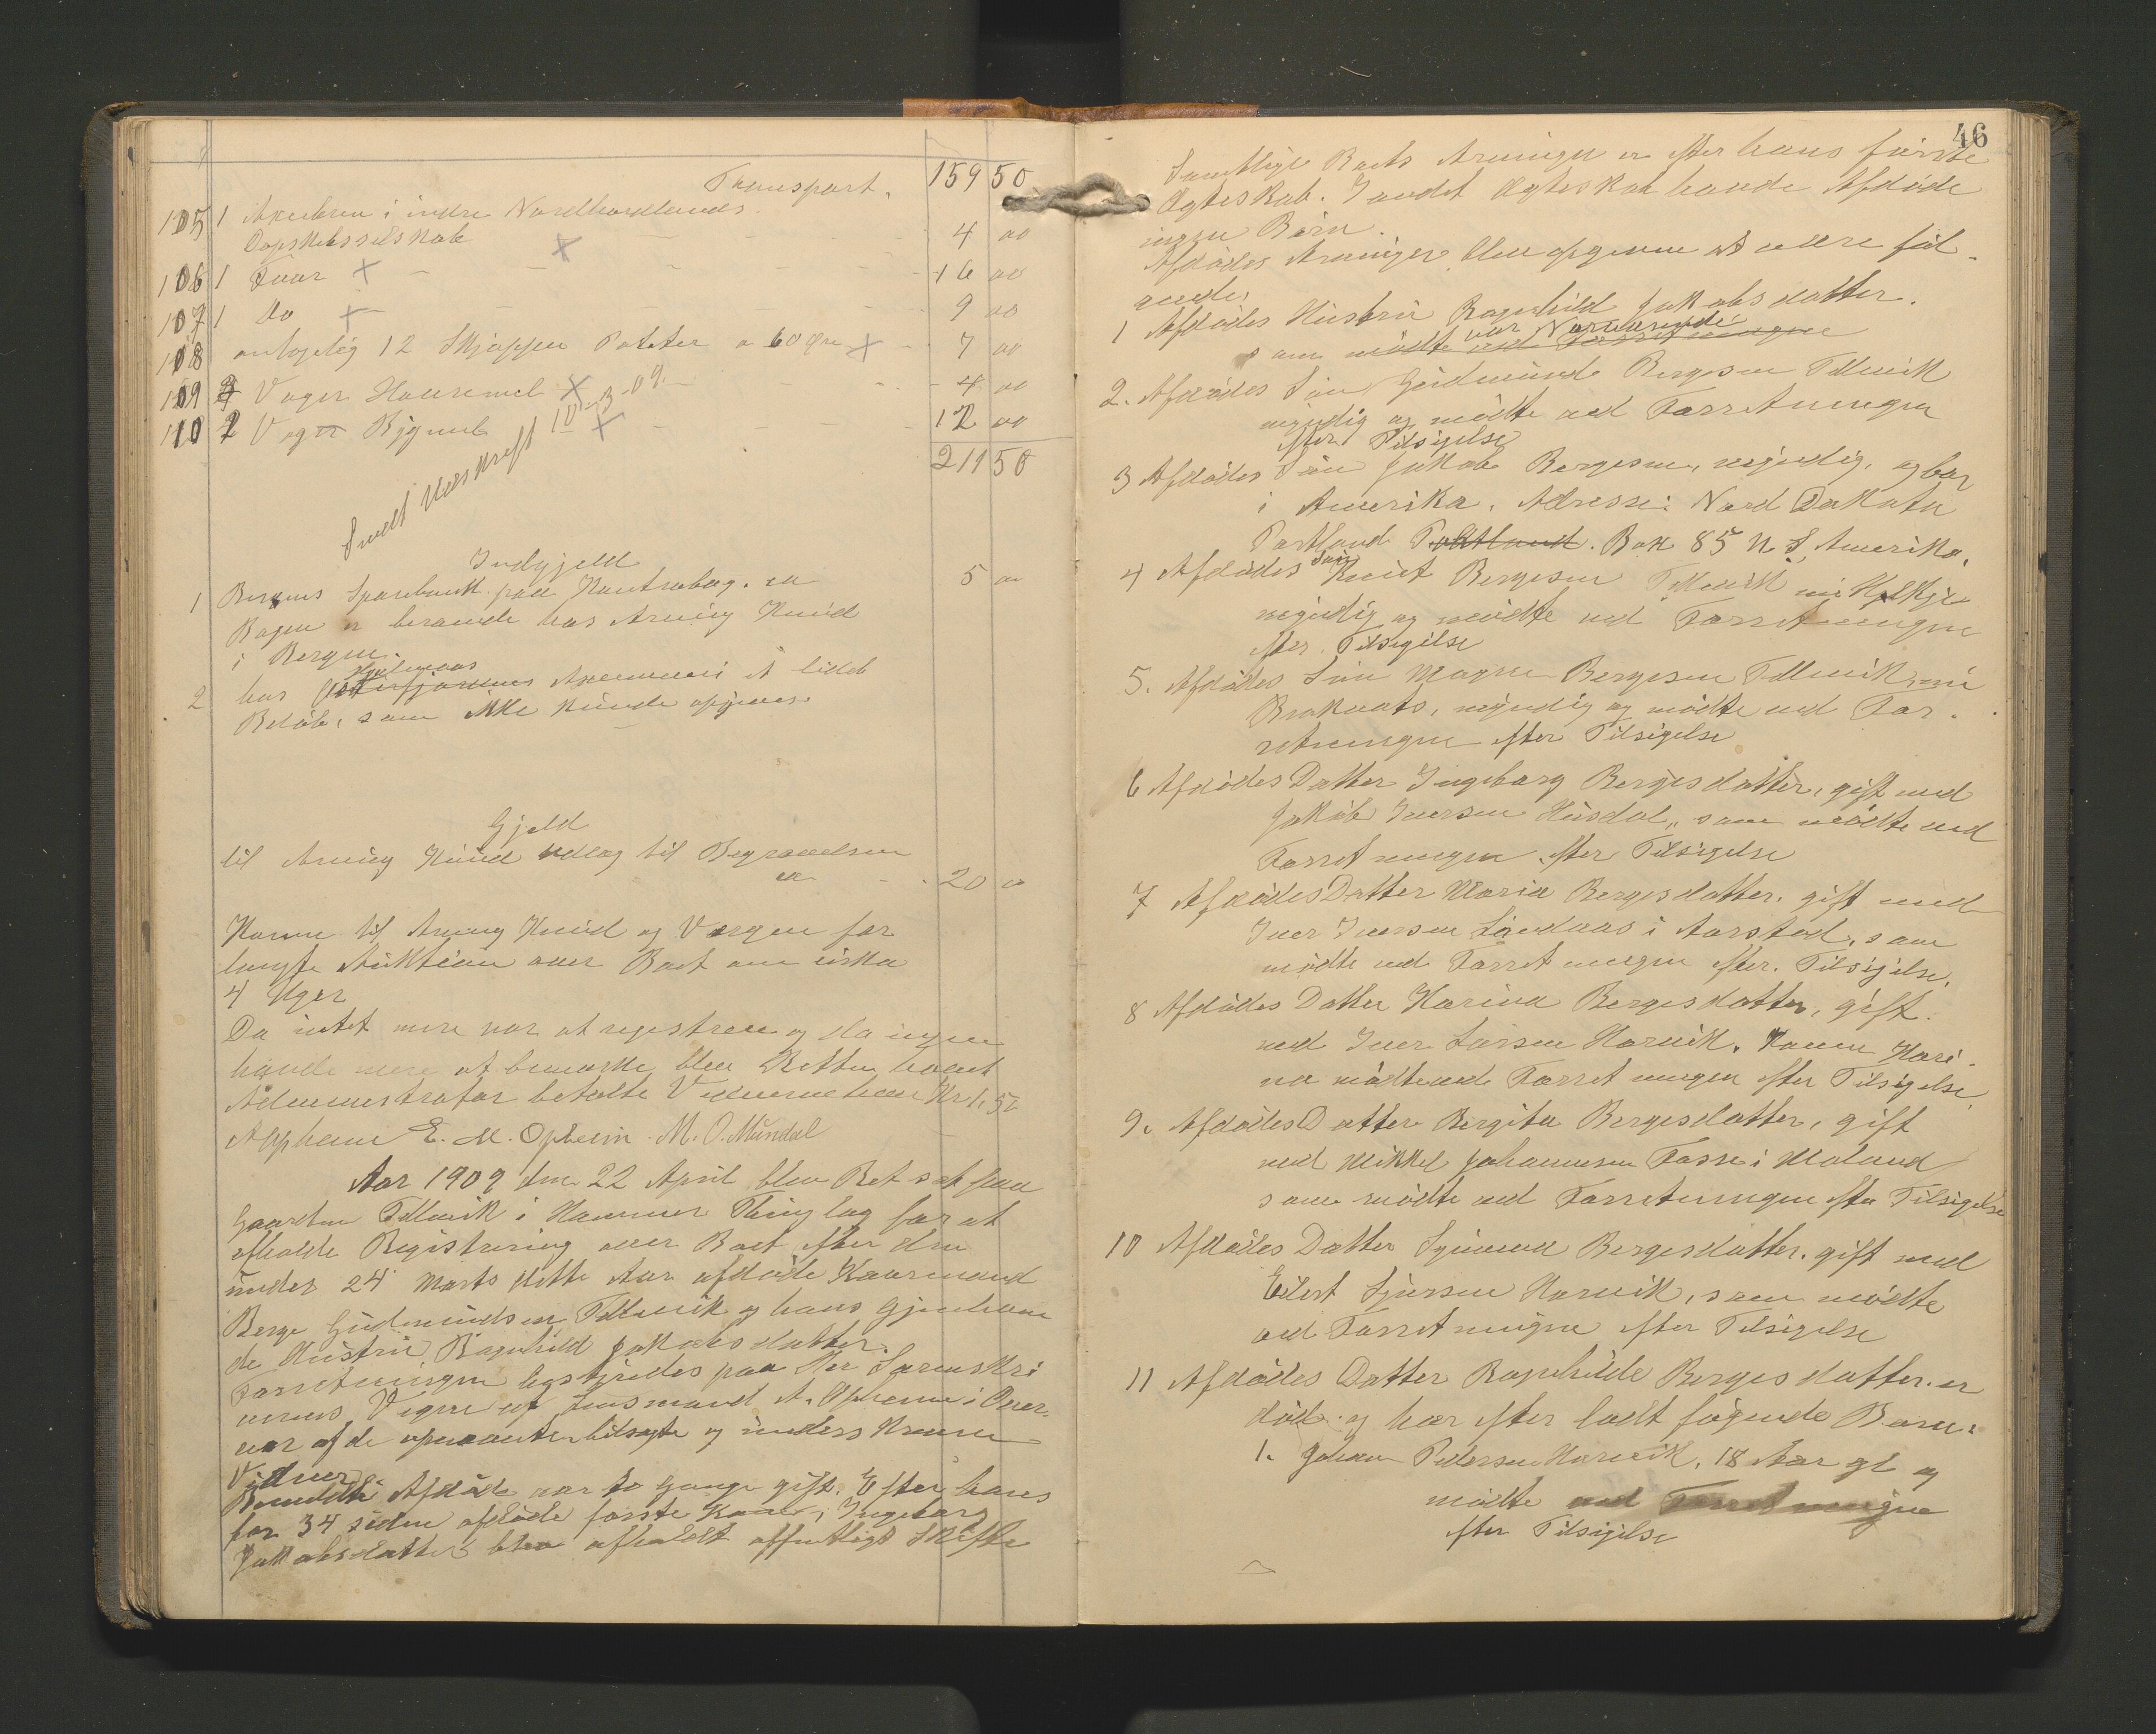 Transport. 159 50
105 1 Axebrev i indre Nordhordlands
Dapskibsselskab 4 00
106 1 Faar 16 00
107 1 do 9 00
108 antagelig 12 Skjæpper Poteter a 60 Øre 7 00
109 Voger Havremel 4 00
110 2 Voger Bygmel 12 00
211 50
Sendt Udskrift 10-3-09.
Indgjeld
1 Bergens Sparebank paa Kontrabog. ca 5 00
Bogen er beroende hos Arving Knud
i Bergen.
2 hos Osterfjordens et lidet
Beløb, som ikke kunde opgives.
Gjeld
til Arving Knud udlæg til Begravelsen
ca 20 00
Konen til Arving Knud og Værgen for
langte Auktion over Boet om cirka
4 Uger
Da intet mere var at registrere og da ingen
havde mere at bemærke blev Retten hævet
Administrator betalte Vidnerne hver Kr 1,50
A Opheim E. M. Opheim. M. O. Mundal
Aar 1909 den 22 April blev Ret sat paa
Gaarden Tellevik i Hammer Thinglag for at
afholde Registrering over Boet efter den
under 24 Marts dette Aar afdøde Kaarmand
Berge Gudmundsen Tellevik og hans gjenleven
de Hustru Ragnhild Jakobsdatter.
Forretningen bestyredes paa Hr Sorenskri
verens Vegne af Lensmand A. Opheim i Over
vær af de opnævnte tilsagte og underskrevne
Vidner
Afdøde var to Gange gift. Efter hans
for 34 siden afdøde første Kone, Ingeborg
Jakobsdatter blev afholdt offentligt Skifte
46
Samtlige Boets Arvinger er efter hans første
Ægteskab. I andet Ægteskab havde Afdøde
ingen Børn.
Afdødes Arvinger blev opgivne at være føl
gende,
1 Afdødes Hustru Ragnhild Jakobsdatter.
var Nærværende
som mødte ved Forretningen
2. Afdødes Søn Gudmund Bergesen Tellevik
myndig og mødte ved Forretningen
efter Tilsigelse
3 Afdødes Søn Jakob Bergesen, myndig, og bor
i Amerika. Adresse: Nord Dakota
Portland Portland. Box 85 N. S. Amerika.
4 Afdødes Søn Knut Bergesen Tellevik
myndig og mødte ved Forretningen
efter Tilsigelse
5. Afdødes Søn Mogne Bergesen Tellevik, nu
myndig og mødte ved For
retningen efter Tilsigelse
6 Afdødes Datter Ingeborg Bergesdatter, gift med
Jakob Iversen Husdal, som mødte ved
Forretningen efter Tilsigelse
7 Afdødes Datter Maria Bergesdatter. gift med
Iver Iversen Landaas i Aarstad, som
mødte ved Forretningen efter Tilsigelse,
8 Afdødes Datter Karina Bergesdatter, gift
med Iver Larsen Hørvik. Konen Kari
na mødte ved Forretningen efter Tilsigelse,
9. Afdødes Datter Bergita Bergesdatter, gift
med Mikkel Johannesen Fosse i Moland
som mødte ved Forretningen efter Tilsigelse
10 Afdødes Datter Synneva Bergesdatter. gift med
Eilert Sjursen Hørvik, som mødte
ved Forretningen efter Tilsigelse
11 Afdødes Datter Ragnhilde Bergesdatter. er
død og har efter ladt følgende Børn:
1. Johan Pedersen Hørvik, 18 Aar gl og
mødte ved Forretningen
efter Tilsigelse